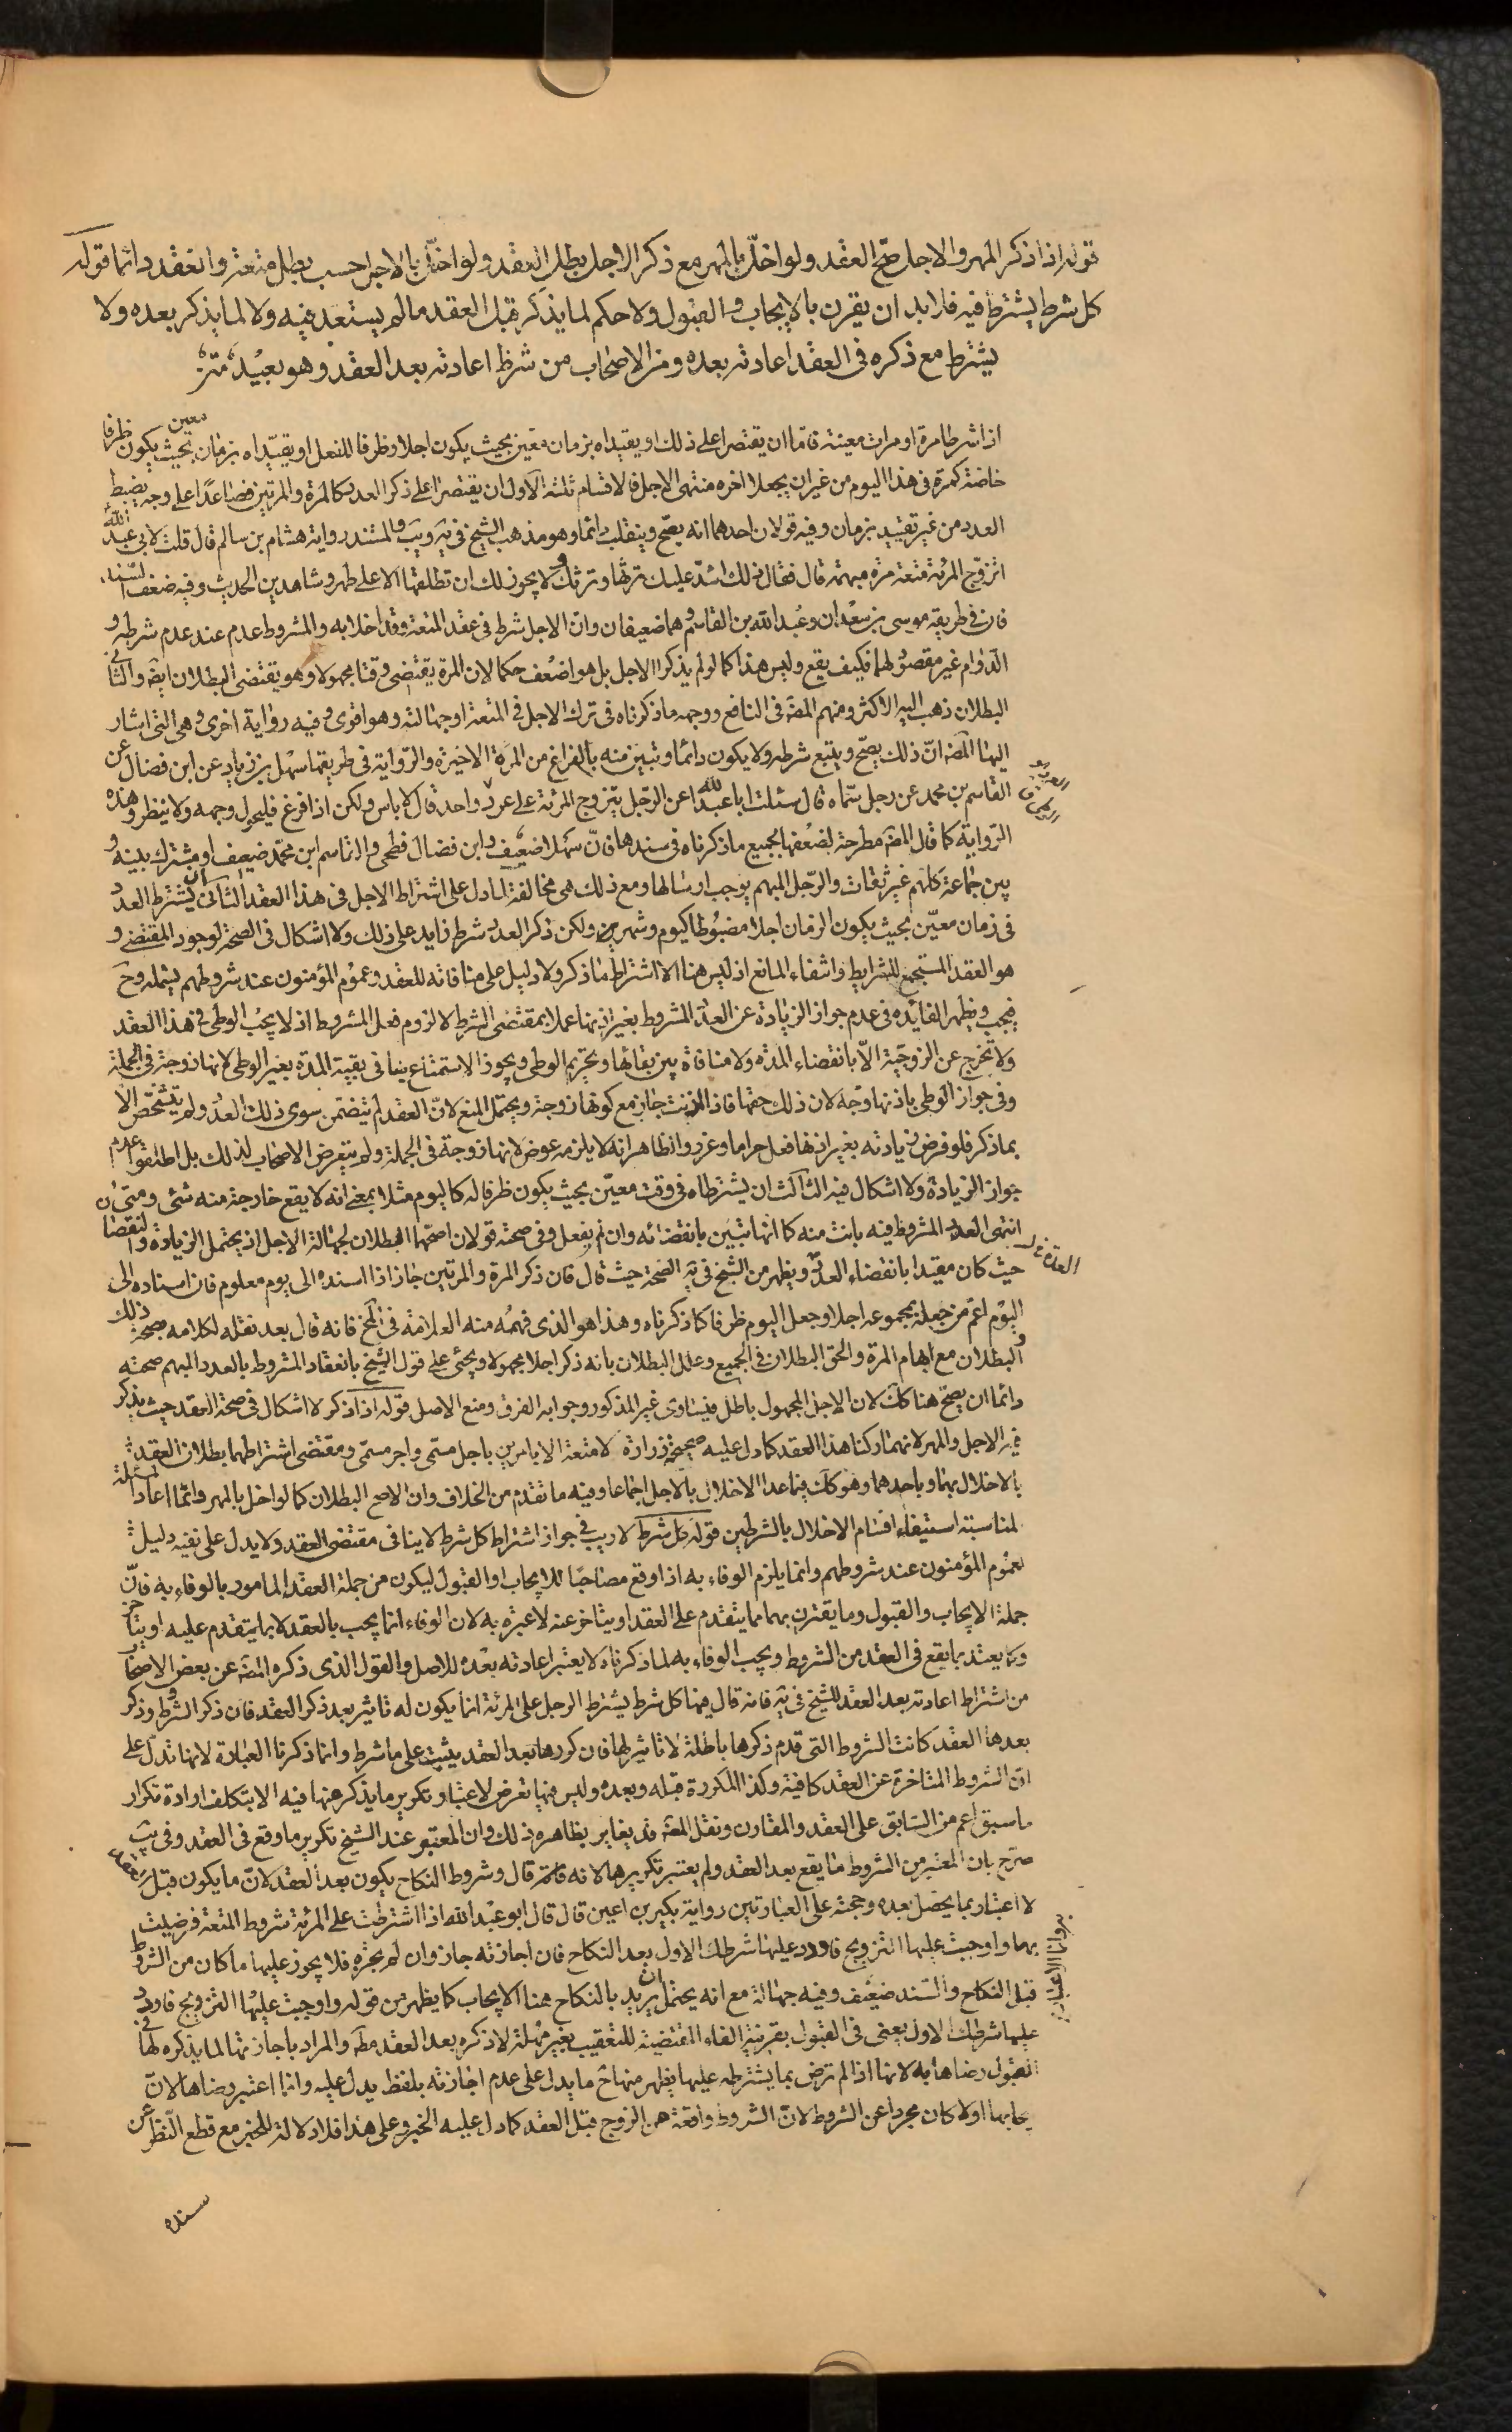 قوله اذا ذكر المهر والاجل صح العقد ولو اخلّ بالمهر مع ذكر الاجل بطل العقد ولو اخلّ بالاجل حسب بطل متعة وانعقد دائما قوله
كل شرط يشترط فيه فلا بد ان يقرن بالايجاب والقبول ولا حكم لما يذكر قبل العقد ما لم يستعد فيه ولا لما يذكر بعده ولا
يشترط مع ذكره فى العقد اعادته بعده ومن الاصحاب من شرط اعادته بعد العقد وهو بعيد
اذا شرطا مرة او مرات معينة فاما ان يقتصرا على ذلك او يقيداه بزمان معين بحيث يكون اجلا وظرفا للفعل او يقيداه بزمان معين بحيث يكون ظرفا
خاصة كمرة فى هذا اليوم من غير ان يجعلا اخره منتهى الاجل فالاقسام ثلثة الاول ان يقتصرا على ذكر العدد كالمرة والمرتين فصاعدا على وجه يضبط
العدد من غير تقييد بزمان وفيه قولان احدهما انه يصح وينقلب دائما وهو مذهب الشيخ فى يه ويب والمستند رواية هشام بن سالم قال قلت لابى عبد الله
اتزوج المرئة متعة مرة مبهمة قال فقال ذلك اشد عليك ترثها وترثك ولا يجوز لك ان تطلقها الا على طهر وشاهدين الحديث وفيه ضعف السند
فان فى طريقه موسى بن سعدان وعبد الله بن القاسم وهما ضعيفان وان الاجل شرط فى عقد المتعة وقد اخلا به والمشروط عدم عند عدم شرطه و
الدوام غير مقصود لهما فكيف يقع وليس هذا كما لو لم يذكرا الاجل بل هو اضعف حكما لان المرة يقتضى وقتا مجهولا وهو يقتضى البطلان ايضا والثانى
البطلان ذهب اليه الاكثر ومنهم المصه فى النافع ووجهه ما ذكرناه فى ترك الاجل فى المتعة او جهالته وهو اقوى وفيه رواية اخرى وهى التى اشار
اليها المصه ان ذلك يصح ويتبع شرطه ولا يكون دائما وتبين منه بالفراغ من المرة الاخيرة والرواية فى طريقها سهل بن زياد عن ابن فضال عن
القاسم بن محمد عن رجل سماه قال سئلت ابا عبد الله عن الرجل يتزوج المرئة على عرد واحد قال لا باس ولكن اذا فرغ فليحول وجهه ولا ينظر وهذه
الرواية كما قال المصه مطرحة لضعفها بجميع ما ذكرناه فى سندها فان سهلا ضعيف وابن فضال فطحى والقاسم ابن محمد ضعيف او مشترك بينه و
بين جماعة كلهم غير ثقات والرجل المبهم يوجب ارسالها ومع ذلك هى مخالفة لما دل على اشتراط الاجل فى هذا العقد الثانى ان يشترط العدد
فى زمان معين بحيث يكون الزمان اجلا مضبوطا كيوم وشهرين ولكن ذكر العدد شرط زايد على ذلك ولا اشكال فى الصحة لوجود المقتضى و
هو العقد المستجمع للشرايط وانتفاء المانع اذ ليس هنا الا اشتراط ما ذكر ولا دليل على منافاته للعقد وعموم المؤمنون عند شروطهم يشمله وح
فيجب ويظهر الفائده فى عدم جواز الزيادة عن العدد المشروط بغير اذنها عملا بمقتضى الشرط لا لزوم فعل المشروط اذ لا يجب الوطى فى هذا العقد
ولا تخرج عن الزوجية الا بانقضاء المده ولا منافاة بين بقائها وتحريم الوطى ويجوز الاستمتاع بها فى بقية المدة بغير الوطى لانها زوجة فى الجملة
وفى جواز الوطى باذنها وجه لان ذلك حقها فاذا اذنت جاز مع كونها زوجة ويحتمل المنع لان العقد لم يتضمن سوى ذلك العدد ولم يتشخص الا
بما ذكر فلو فرض زيادته بغير اذنها فعل حراما وعزر والظاهر انه لا يلزمه عوض لانها زوجة فى الجملة ولم يتعرض الاصحاب لذلك بل اطلقوا عدم
جواز الزيادة ولا اشكال فيه الثالث ان يشترطاه فى وقت معين بحيث يكون ظرفا له كاليوم مثلا بمعنى انه لا يقع خارجه منه شئ ومتى
انتهى العدد المشروط فيه بانت منه كما انها تبين بانقضائه وان لم يفعل وفى صحته قولان اصحهما البطلان لجهالة الاجل اذ يحتمل الزيادة والنقصان
حيث كان مقيدا بانقضاء العدد ويظهر من الشيخ فى يه الصحة حيث قال فان ذكر المرة والمرتين جاز اذا اسنده الى يوم معلوم فان اسناده الى
اليوم اعم من جعله بمجموعه اجلا وجعل اليوم ظرفا كما ذكرناه وهذا هو الذى فهمه منه العلامة فى المخ فانه قال بعد نقله لكلامه صحة ذلك
والبطلان مع ابهام المرة والحق البطلان فى الجميع وعلل البطلان بانه ذكر اجلا مجهولا ويجئ على قول الشيخ بانعقاد المشروط بالعدد المبهم صحته
دائما ان يصح هنا كك لان الاجل المجهول باطل فيساوى غير المذكور وجوابه الفرق ومنع الاصل قوله اذا ذكر لا اشكال فى صحة العقد حيث يذكر
فيه الاجل والمهر لانهما ركنا هذا العقد كما دل عليه صحيحة زرارة لا متعة الا بامرين باجل مسمى واجر مسمى ومقتضى اشتراطهما بطلان العقد
بالاخلال بهما وباحدهما وهو كك فيما عدا الاخلال بالاجل اجماعا وفيه ما تقدم من الخلاف وان الاصح البطلان كما لو اخل بالمهر وانما اعاد المسئلة
لمناسبته استيفاء اقسام الاخلال بالشرطين قوله كل شرط لا ريب فى جواز اشتراط كل شرط لا ينافى مقتضى العقد ولا يدل على نفيه دليل
لعموم المؤمنون عند شروطهم وانما يلزم الوفاء به اذا وقع مصاحبا للايجاب والقبول ليكون من جملة العقد المامور بالوفاء به فان
جملة الايجاب والقبول وما يقترن بهما مما يتقدم على العقد او يتاخر عنه لا عبرة به لان الوفاء انما يجب بالعقد لا بما يتقدم عليه او يتاخر
وكما يعتد بما يقع فى العقد من الشروط ويجب الوفاء به لما ذكرناه لا يعتبر اعادته بعده للاصل والقول الذى ذكره المصه عن بعض الاصحاب
من اشتراط اعادته بعد العقد للشيخ فى يه فانه قال فيها كل شرط يشترط الرجل على المرئة انما يكون له تاثير بعد ذكر العقد فان ذكر الشروط وذكر
بعدها العقد كانت الشروط التى قدم ذكرها باطلة لا تاثير لها فان كررها بعد العقد يثبت على ما شرط وانما ذكرنا العبارة لانها تدل على
ان الشروط المتاخرة عن العقد كافية وكذا المكررة قبله وبعده وليس فيها تعرض لاعتبار تكرير ما يذكر منها فيه الا بتكلف ارادة تكرار
ما سبق اعم من السابق على العقد والمقارن ونقل المصه قد يغاير بظاهره ذلك وان المعتبر عند الشيخ تكرير ما وقع فى العقد وفى يب
صرح بان المعتبر من الشروط ما يقع بعد العقد ولم يعتبر تكريرها لانه قال وشروط النكاح يكون بعد العقد لان ما يكون قبل
لا اعتبار بما يحصل بعده وحجته على العبارتين رواية بكير بن اعين قال قال ابو عبد الله اذا اشترطت على المرئة شروط المتعة فرضيت
بها واوجبت عليها التزويج فاردد عليها شرطك الاول بعد النكاح فان اجازته جاز وان لم تجزه فلا يجوز عليها ما كان من الشروط
قبل النكاح والسند ضعيف وفيه جهالة مع انه يحتمل ان يريد بالنكاح هنا الايجاب كما يظهر من قوله واوجبت عليها التزويج فاردد
عليها شرطك الاول يعنى فى القبول بقرينة الفاء المقتضية للتعقيب بغير مهلة لا ذكره بعد العقد مطه والمراد باجازتها لما يذكره لها فى
القبول رضاها به لانها اذا لم ترض بما يشترطه عليها يظهر منها ح ما يدل على عدم اجازته بلفظ يدل عليه وانما اعتبر رضاها لان
يجابها اولا كان مجردا عن الشروط لان الشروط واقعة من الزوج قبل العقد كما دل عليه الخبر وعلى هذا فلا دلالة للخبر مع قطع النظر عن
سنده